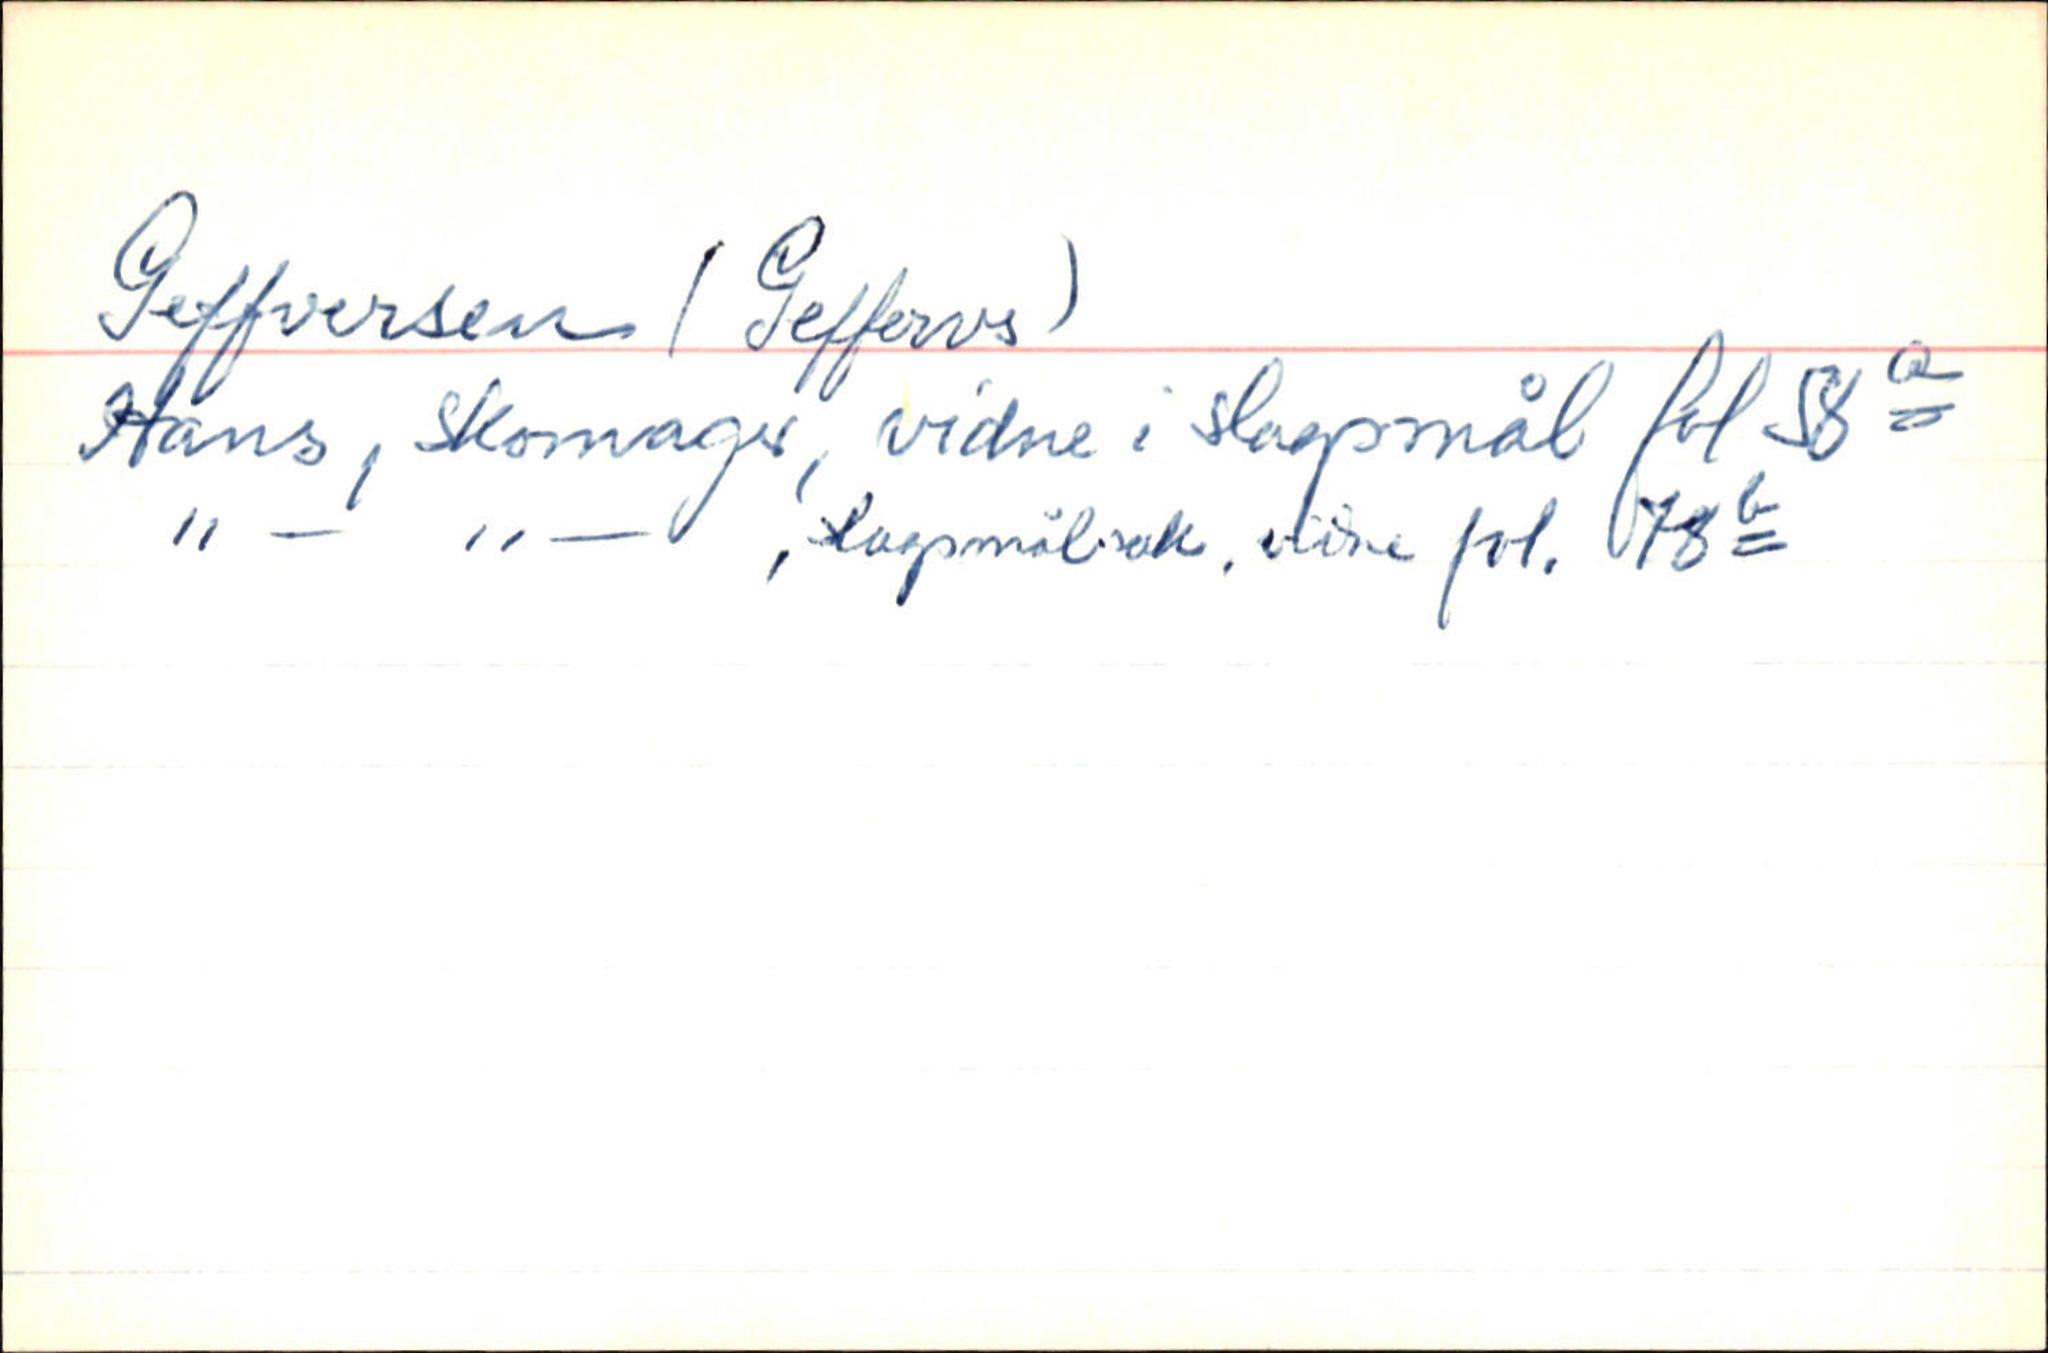 Geffversen (Geffervs)
Hans, Skomager, vidne i slagsmål fol 58 a
" — " — , slagsmålsak, vidne fol. 78 b